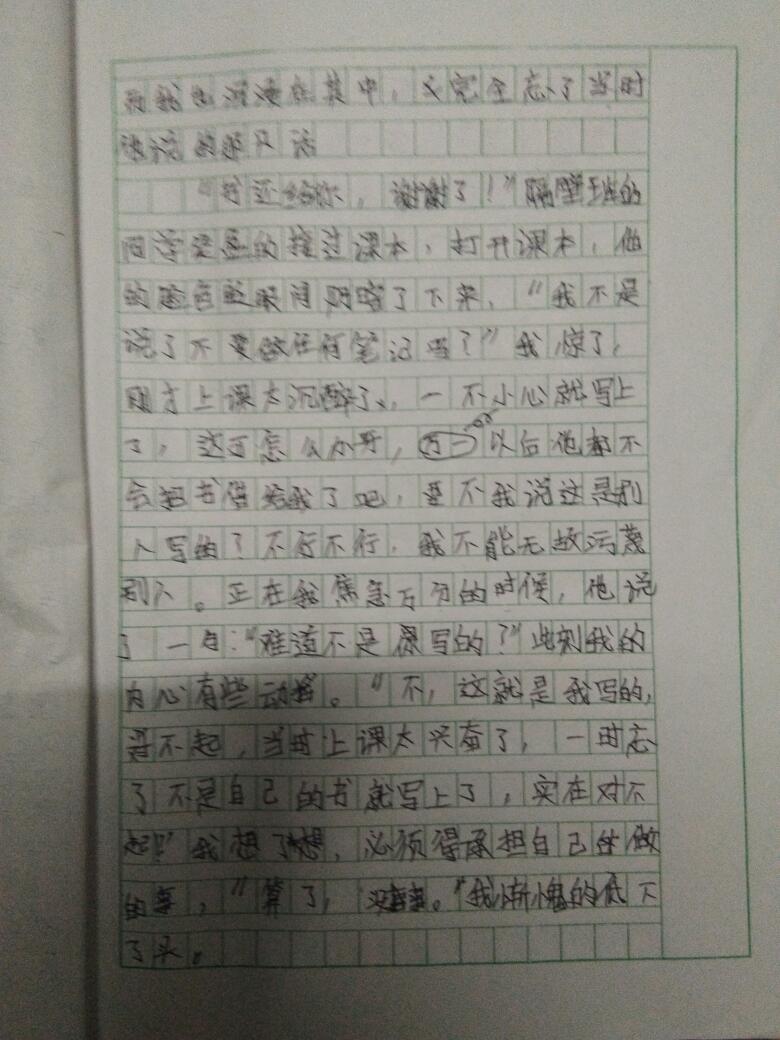 而我也沉浸在其中，又完全忘了当时
他说的那只话
“书还给你，谢谢了！”隔壁班的
同学梁盈的接过课本，打开课本，他
的脸色眨眼间阴暗了下来，“我不是
说了不要做任何笔记吗？”我惊了，
刚才上课太沉醉了，一不小心就写上
了，这可怎么办哥，万一以后他都不
会把书借给我了吧，要不我说这是别
人写的？不行不行，我不能无故污蔑
别人。正在我焦急万分的时候，他说
了一句：“难道不是你写的？”此刻我的
内心有些动摇。“不，这就是我写的，
对不起，当时上课太兴奋了，一时忘
了不是自己的书就写上了，实在对不
起！”我想了想，必须得承担自己做
的事，“算了，没事。”我惭愧的低下
了头。